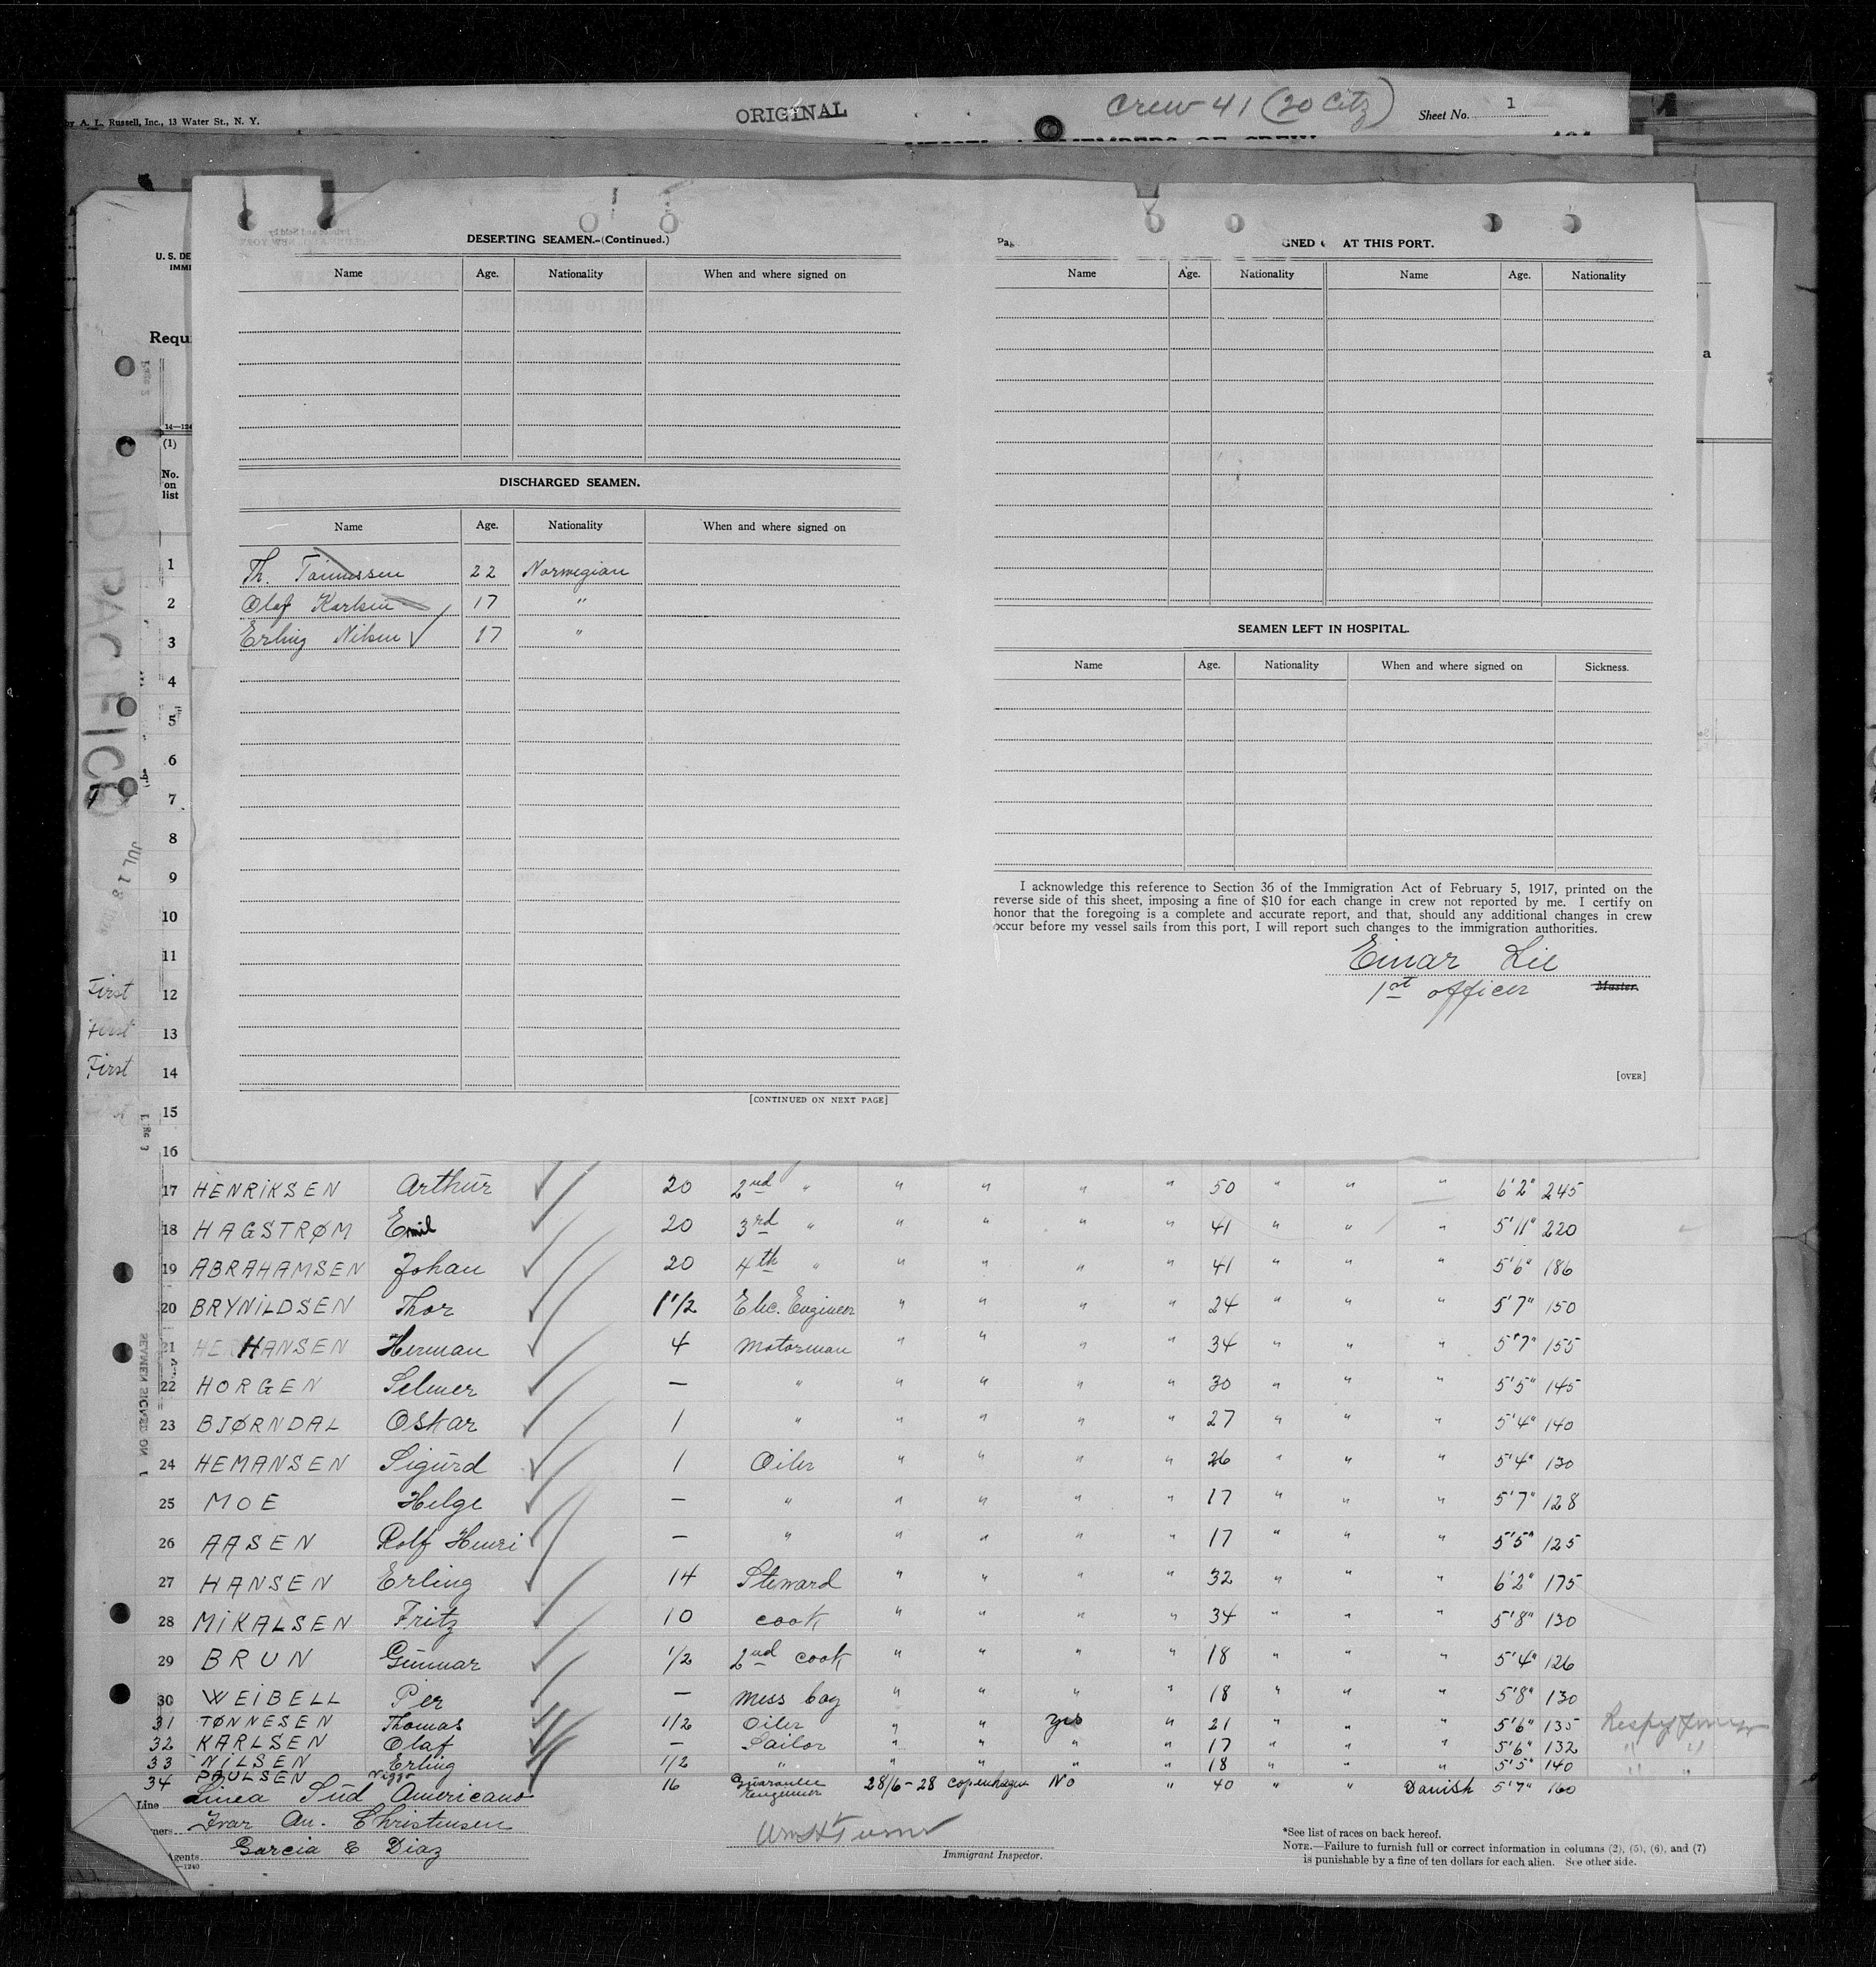 by A. L. Russell, Inc., 13 Water St., N. Y.
ORIGINAL
Crew 41 (20 Citz)
Sheet No. 1
U. S. DE
IMMI
Requ
14—124
(1)
No.
on
list
DESERTING SEAMEN.—(Continued.)
Name Age. Nationality When and where signed on
DISCHARGED SEAMEN.
Name Age. Nationality When and where signed on
Th. Tönnessen 22 Norwegian
Olaf Karlsen 17 "
Erling Nilsen 17 "
[CONTINUED ON NEXT PAGE]
GNED AT THIS PORT.
Name Age. Nationality Name Age. Nationality
SEAMEN LEFT IN HOSPITAL.
Name Age. Nationality When and where signed on Sickness.
I acknowledge this reference to Section 36 of the Immigration Act of February 5, 1917, printed on the
reverse side of this sheet, imposing a fine of $10 for each change in crew not reported by me. I certify on
honor that the foregoing is a complete and accurate report, and that, should any additional changes in crew
occur before my vessel sails from this port, I will report such changes to the immigration authorities.
Einar Lie
1st officer Master.
[OVER]
1
2
3
4
5
6
7
8
9
10
11
First 12
First 13
First 14
15
16
17 HENRIKSEN Arthur 20 2nd " " " " " 50 " " " 6'2" 245
18 HAGSTRØM Emil 20 3rd " " " " " 41 " " " 5'11" 220
19 ABRAHAMSEN Johan 20 4th " " " " " 41 " " " 5'6" 186
20 BRYNILDSEN Thor 1 1/2 Elec. Engineer " " " " 24 " " " 5'7" 150
21 HANSEN Herman 4 Motorman " " " " 34 " " " 5'7" 155
22 HORGEN Selmer — " " " " " 30 " " " 5'5" 145
23 BJØRNDAL Oskar 1 " " " " " 27 " " " 5'4" 140
24 HEMANSEN Sigurd 1 Oiler " " " " 26 " " " 5'4" 130
25 MOE Helge — " " " " " 17 " " " 5'7" 128
26 AASEN Rolf Henri — " " " " " 17 " " " 5'5" 125
27 HANSEN Erling 14 Steward " " " " 32 " " " 6'2" 175
28 MIKALSEN Fritz 10 cook " " " " 34 " " " 5'8" 130
29 BRUN Gunnar 1/2 2nd cook " " " " 18 " " " 5'4" 126
30 WEIBELL Per — Mess boy " " " " 18 " " " 5'8" 130
31 TØNNESEN Thomas 1/2 Oiler " " yes " 21 " " " 5'6" 135
32 KARLSEN Olaf — Sailor " " " " 17 " " " 5'6" 132
33 NILSEN Erling 1/2 " " " " " 18 " " " 5'5" 140
34 PAULSEN Viggo 16 Guarantee Engineer 28/6-28 Copenhagen No " 40 " " Danish 5'7" 160
Line Linea Sud Americano
ners Ivar An. Christensen
Agents Garcia & Diaz
—1240
Wm H Turner
Immigrant Inspector.
*See list of races on back hereof.
NOTE.—Failure to furnish full or correct information in columns (2), (5), (6), and (7)
is punishable by a fine of ten dollars for each alien. See other side.